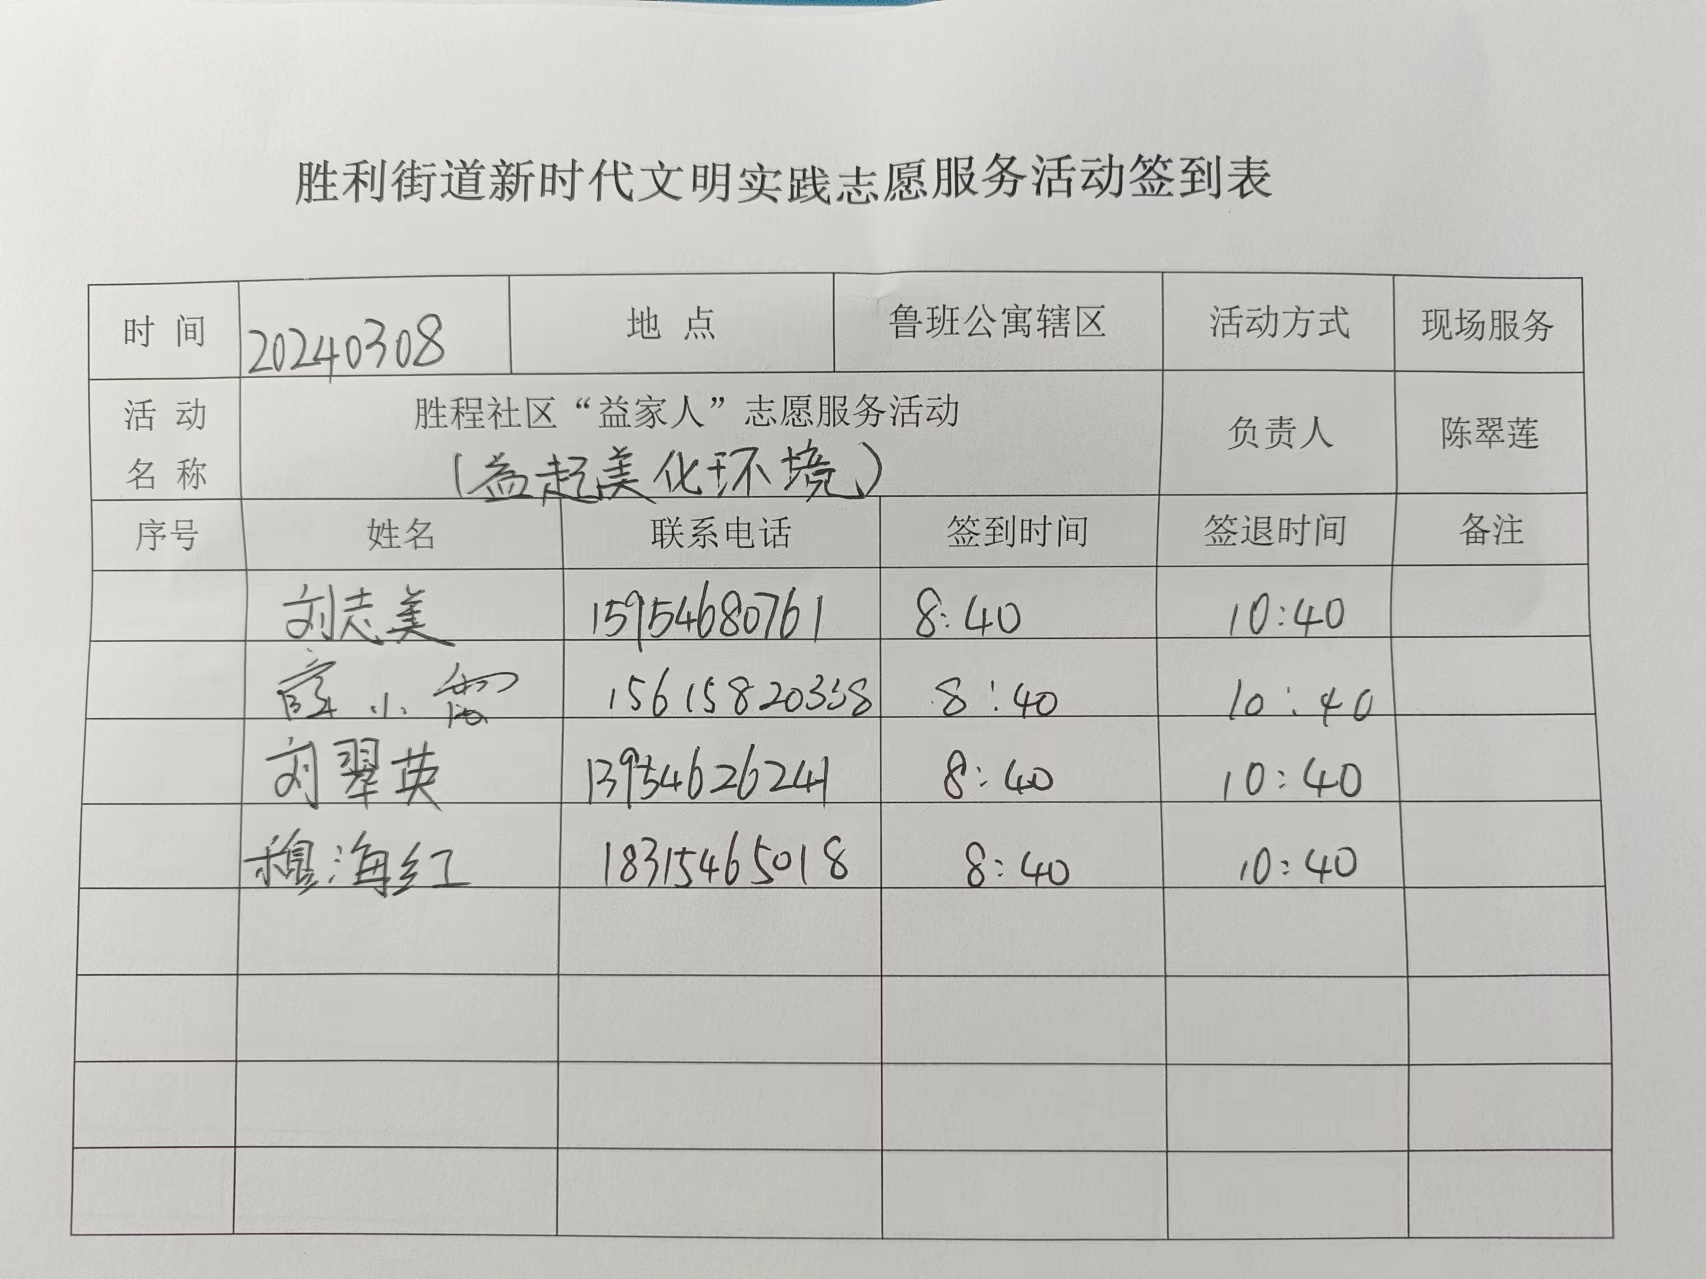 胜利街道新时代文明实践志愿服务活动签到表
时 间 20240308 地 点 鲁班公寓辖区 活动方式 现场服务
活 动 名 称 胜程社区“益家人”志愿服务活动 负责人 陈翠莲
(益起美化环境)
序号 姓名 联系电话 签到时间 签退时间 备注
刘志美 15954680761 8:40 10:40
小 15615820338 8:40 10:40
刘翠英 13954626241 8:40 10:40
穆海红 18315465018 8:40 10:40